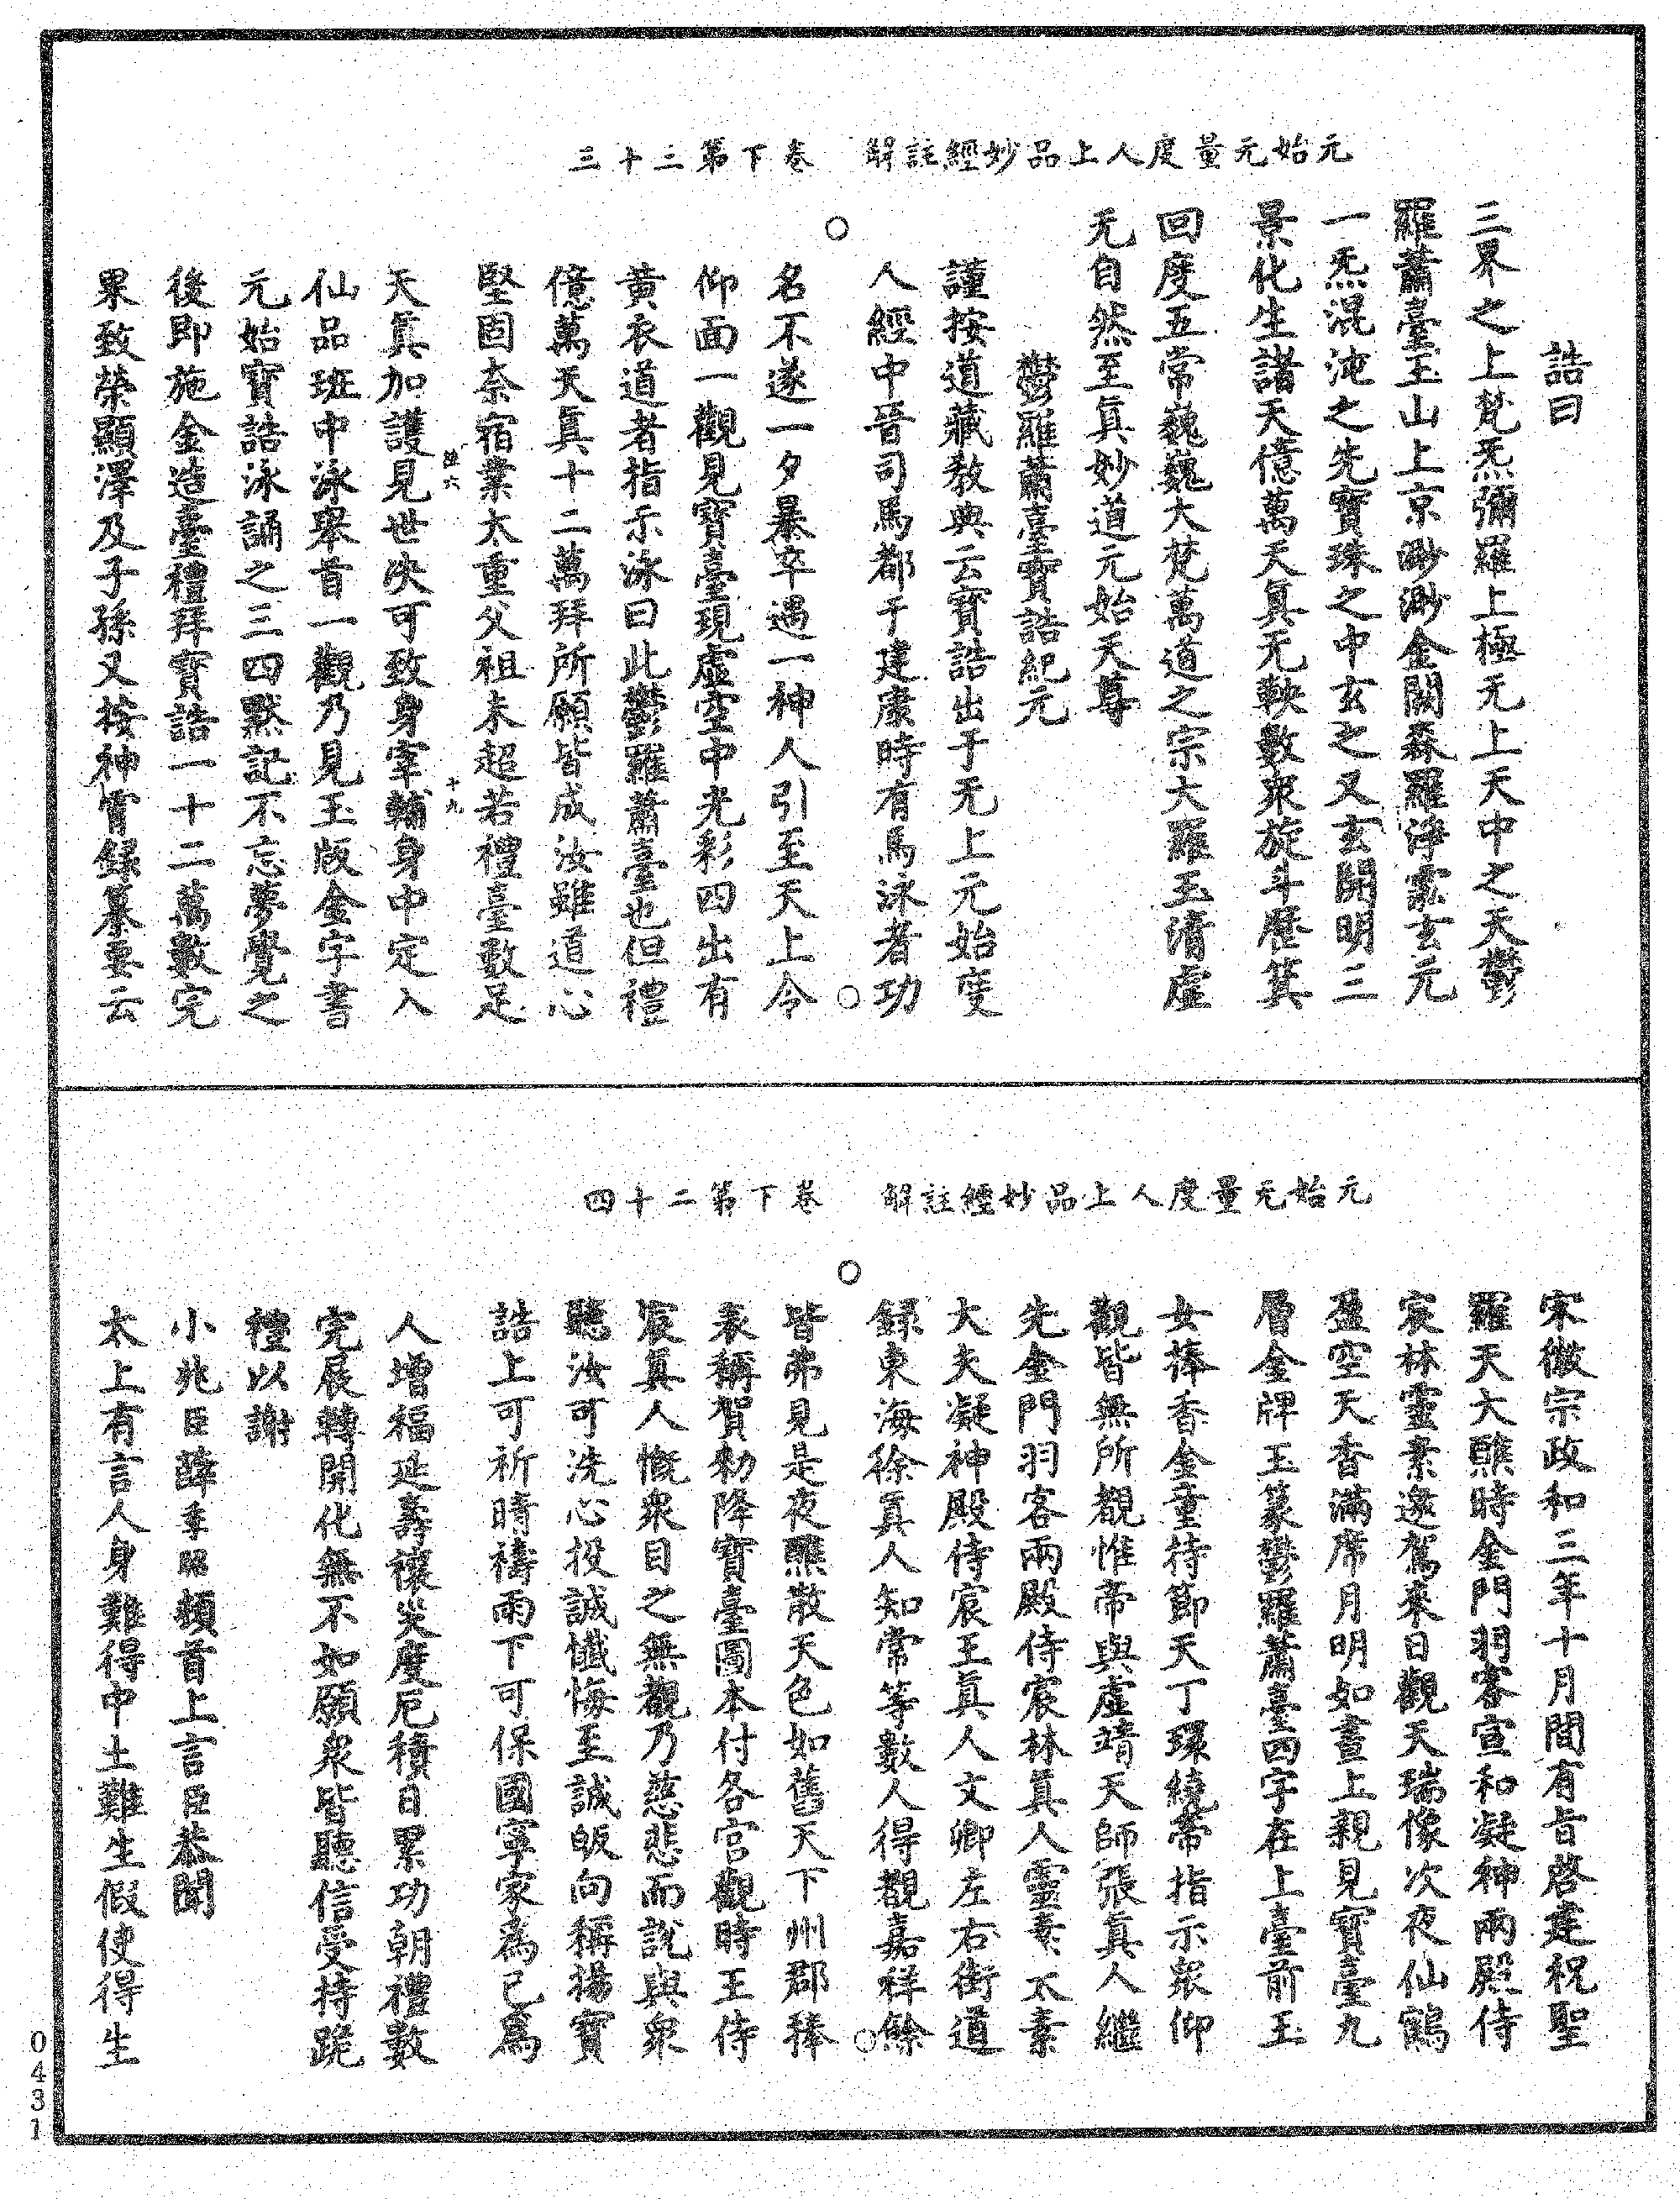 元始无量度人上品妙經註解　卷下第三十三
誥曰
三界之上梵炁彌羅上極无上天中之天鬱
羅蕭臺玉山上京渺渺金闕森羅淨泓玄元
一炁混沌之先寶珠之中玄之又玄開明三
景化生諸天億萬天真无鞅數衆旋斗歷箕
回度五常巍巍大梵萬道之宗大羅玉清虛
无自然至真妙道元始天尊
鬱羅蕭臺寶誥紀元
謹按道藏教典云寶誥出于无上元始度
人經中晉司馬都于建康時有馬泳者功
名不遂一夕暴卒遇一神人引至天上令
仰面一觀見寶臺現虛空中光彩四出有
黃衣道者指示泳曰此鬱羅蕭臺也但禮
億萬天真十二萬拜所願皆成汝雖道心
堅固奈宿業太重父祖未超若禮臺數足
六
十九
天真加護見世決可致身宰輔身中定入
仙品班中泳舉首一觀乃見玉版金字書
元始寶誥泳誦之三四默記不忘夢覺之
後即施金造臺禮拜寶誥一十二萬數完
果致榮顯澤及子孫又按神霄録纂要云
元始无量度人上品妙經註解　卷下第二十四
宋徽宗政和三年十月間有旨啓建祝聖
羅天大醮時金門羽客宣和凝神兩殿侍
宸林靈素邀駕來日觀天瑞像次夜仙鶴
盈空天香滿席月明如晝上親見寶臺九
層金牌玉篆鬱羅蕭臺四字在上臺前玉
女捧香金童持節天丁環繞帝指示衆仰
觀皆無所覩惟帝與虛靖天師張真人繼
先金門羽客兩殿侍宸林真人靈素太素
大夫凝神殿侍宸王真人文卿左右街道
録東海徐真人知常等數人得覩嘉祥餘
皆弗見是夜醮散天色如舊天下州郡捧
表稱賀勑降寶臺圖本付各宮觀時王侍
宸真人慨衆目之無觀乃慈悲而說與衆
聽汝可洗心投誠懺悔至誠皈向稱揚寶
誥上可祈晴禱雨下可保國寧家為已爲
人增福延壽禳災度厄積日累功朝禮數
完展轉開化無不如願衆皆聽信受持跪
禮以謝
小兆臣薛季昭頓首上言臣恭聞
太上有言人身難得中土難生假使得生
0431